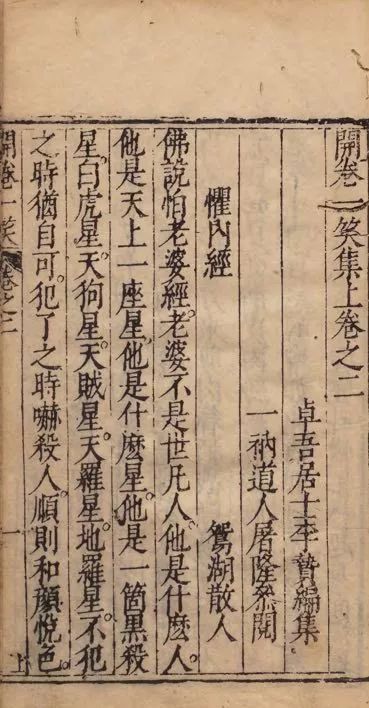 開卷一笑集上卷之二
卓吾居士李贄編集
一衲道人屠隆叅閱
懼內經 鴛湖散人
佛說怕老婆經。老婆不是世凡人。他是什麼人。
他是天上一座星。他是什麼星。他是一箇黑殺
星。白虎星。天狗星。天賊星。天羅星。地羅星。不犯
之時猶自可。犯了之時嚇殺人。順則和顏悅色。
開卷一笑 卷之二 一 上